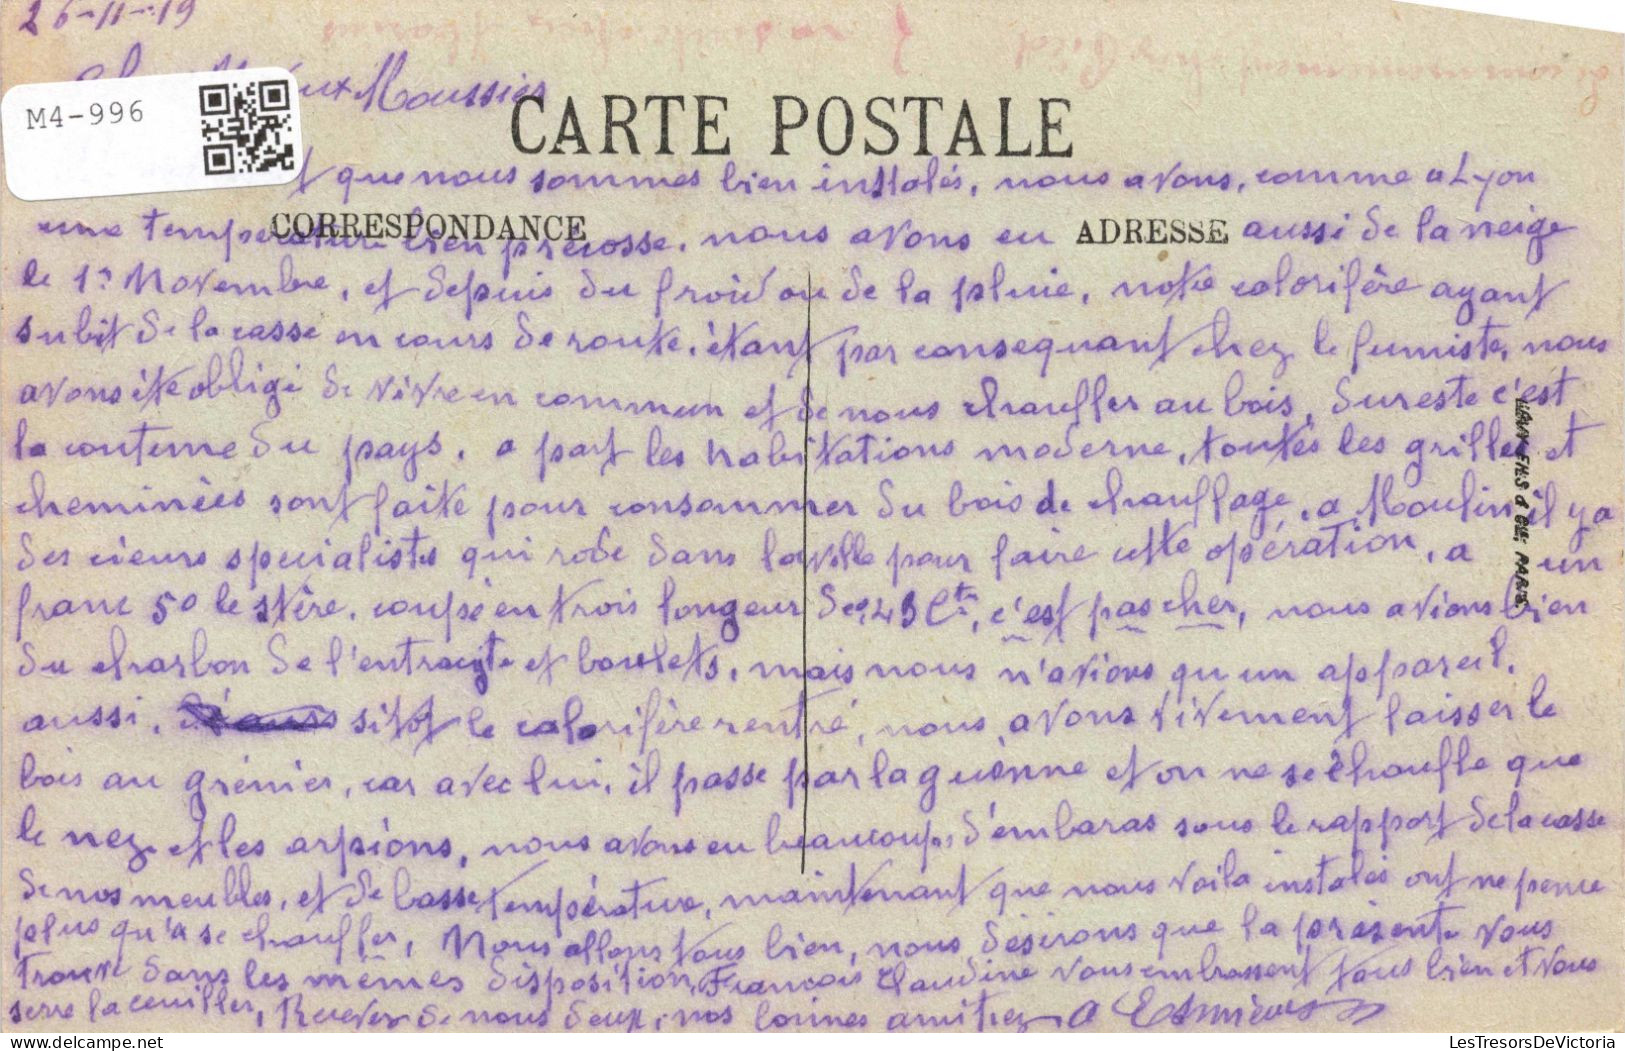 26-11-19
M4-996
Moussier
CARTE POSTALE
que nous sommes bien instolés, nous avons, comme a Lyon
une temperature bien precosse. nous avons eu aussi de la neige
CORRESPONDANCE
ADRESSE
le 1er Novembre, et depuis du froid ou de la pluie, notre calorifère ayant
subit de la casse en cours de route, étant par consequant chez le fumiste, nous
avons été obligé de vivre en commun et de nous chauffer au bois, du reste c'est
la coutume du pays, a part les habitations moderne, toutes les grilles et
cheminées sont faite pour consommer du bois de chauffage, a Moulin il y a
des cieurs specialistes qui rode dans la ville pour faire cette opération, a un
franc 50 le stère, coupé en trois longeur de 0,45 Cts, c'est pas cher, nous avions bien
du charbon de l'entracyte et boulets, mais nous n'avions qu un appareil,
aussi, sitot le calorifère rentré, nous avons vivement laisser le
bois au grénier, car avec lui, il passe par la guènne et on ne se chauffe que
le nez et les arpions, nous avons eu beaucoup d'embaras sous le rapport de la casse
de nos meubles, et de basse température, maintenant que nous voila instolés ont ne pence
plus qu'a se chauffer, Nous allons tous bien, nous désirons que la présente vous
trouve dans les mêmes disposition, Francois Claudine vous embrassent tous bien et vous
serre la ceuiller, Recever de nous deux, nos bonnes amitiez
LesTresorsDeVictoria